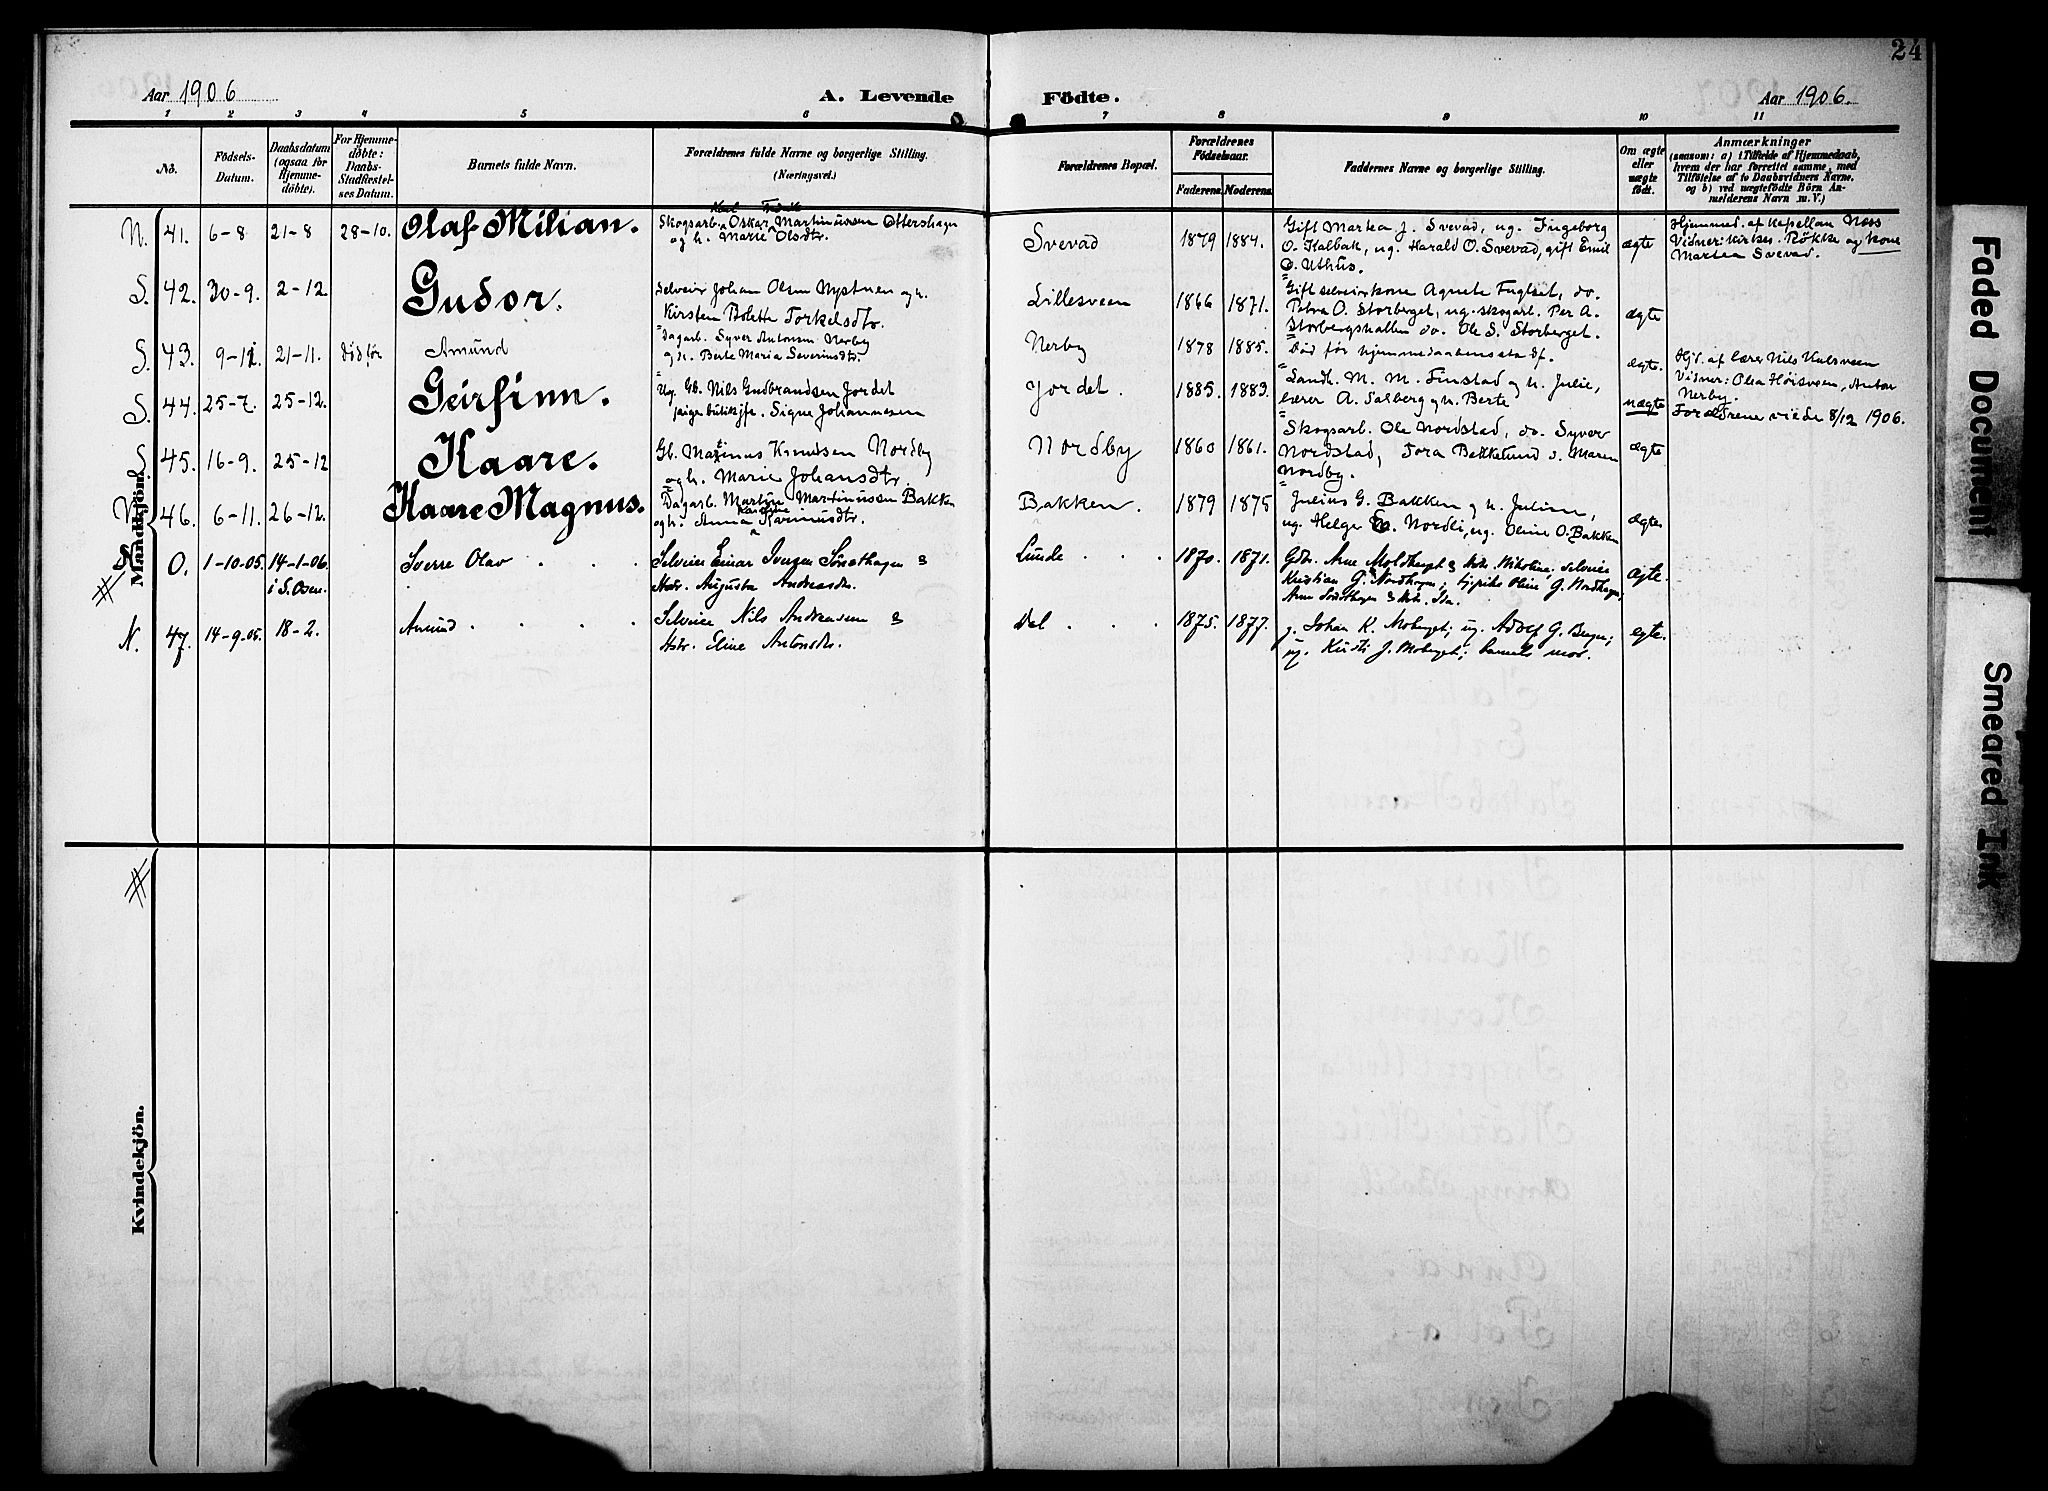 24
Aar 1906
A. Levende
Födte.
Aar 1906.
1 2 3 4 5 6 7 8 9 10 11
No.
Födsels-
Datum.
Daabsdatum
(ogsaa for
Hjemme-
döbte).
For Hjemme-
döbte:
Daabs-
Stadfæstel-
ses Datum.
Barnets fulde Navn.
Forældrenes fulde Navne og borgerlige Stilling.
(Næringsvei.)
Forældrenes Bopæl.
Forældrenes
Födselsaar.
Faderens. Moderens.
Faddernes Navne og borgerlige Stilling.
Om ægte
eller
uægte
født.
Anmærkninger
(saasom: a) i Tilfælde af Hjemmedaab,
hvem der har forrettet samme, med
Tilføielse af to Daabsvidners Navne,
og b) ved uægtefödte Börn An-
melderens Navn m. V.)
Mandkjön.
N. 41. 6-8 21-8 28-10. Olaf Milian.
Skogsarb. Oskar Martinussen Ottershagen
og h. Marie Olsdtr.
Svevad 1879 1884.
Gift Martea J. Svevad, ug. Ingeborg
O. Kalbak, ug. Harald O. Svevad, gift Emil
O. Uthus.
ægte
Hjemmed. af Kapellan Næss
Vidner: Kirkes. Røkke og kone
Martea Svevad.
S. 42. 30-9. 2-12. Gudor.
Selveier Johan Olsen Nystuen og h.
Kirsten Bolette Torkelsdtr.
Lillesveen 1866 1871.
Gift selveierkone Agnete Fuglset, do.
Petra O. Storberget, ug. skogarb. Per A.
Storbergshallen do. Ole S. Storberget.
ægte
S. 43. 9-11 21-11. død før Amund
Dagarb. Syver Antonsen Nerby
og h. Berte Maria Severinsdtr.
Nerby 1878 1885.
Død før hjemmedaabens stadf.
ægte.
Hjd. af Lærer Nils Kulsveen
Vidner: Olea Høisveen, Anton
Nerby.
S. 44. 25-7. 25-12. Geirfinn.
Ug. Gb. Nils Gudbrandsen Jordet
pige butikjfr. Signe Johannesen
Jordet. 1885. 1883.
Landh. M. M. Finstad og h. Julie,
Lærer A. Solberg og h. Berte
uægte
Forældrene viede 8/12 1906.
S 45. 16-9. 25-12 Kaare.
Gb. Martinus Knudsen Nordby
og h. Marie Johansdtr.
Nordby 1860 1861.
Skogsarb. Ole Nordstad, do. Syver
Nordstad, Tora Bekkelund o. Maren
Nordby.
ægte
V. 46. 6-11. 26-12. Kaare Magnus.
Dagarb. Martin Martinussen Bakken
Karoline
og h. Anna Karinusdtr.
Bakken. 1879 1875
Julius G. Bakken og h. Juline,
ug. Helge M. Nordli, ug. Oline O. Bakken
ægte
N. O. 1-10-05. 14-1-06. Sverre Olav
i S. Osen.
Selveier Einar Iversen Sørsthagen &
Hstr. Augusta Andreasdtr.
Lunde 1870. 1871.
Gdbr. Arne Moldberget & Hstr. Nikoline; selveier
Kristian G. Nordhagen; tjpike Oline G. Nordhagen,
Arne Sørsthagen & Hstr. Ida.
ægte.
N. 47. 14-9-05. 18-2. Amund
Selveier Nils Andreassen &
Hstr. Eline Antonsdtr.
Dal 1875. 1877.
g. Johan K. Moberget; ug. Adolf G. Berger;
ug. Kirsti J. Moberget; barnets mor.
egte.
Kvindekjön.
Faded Document
Smeared Ink